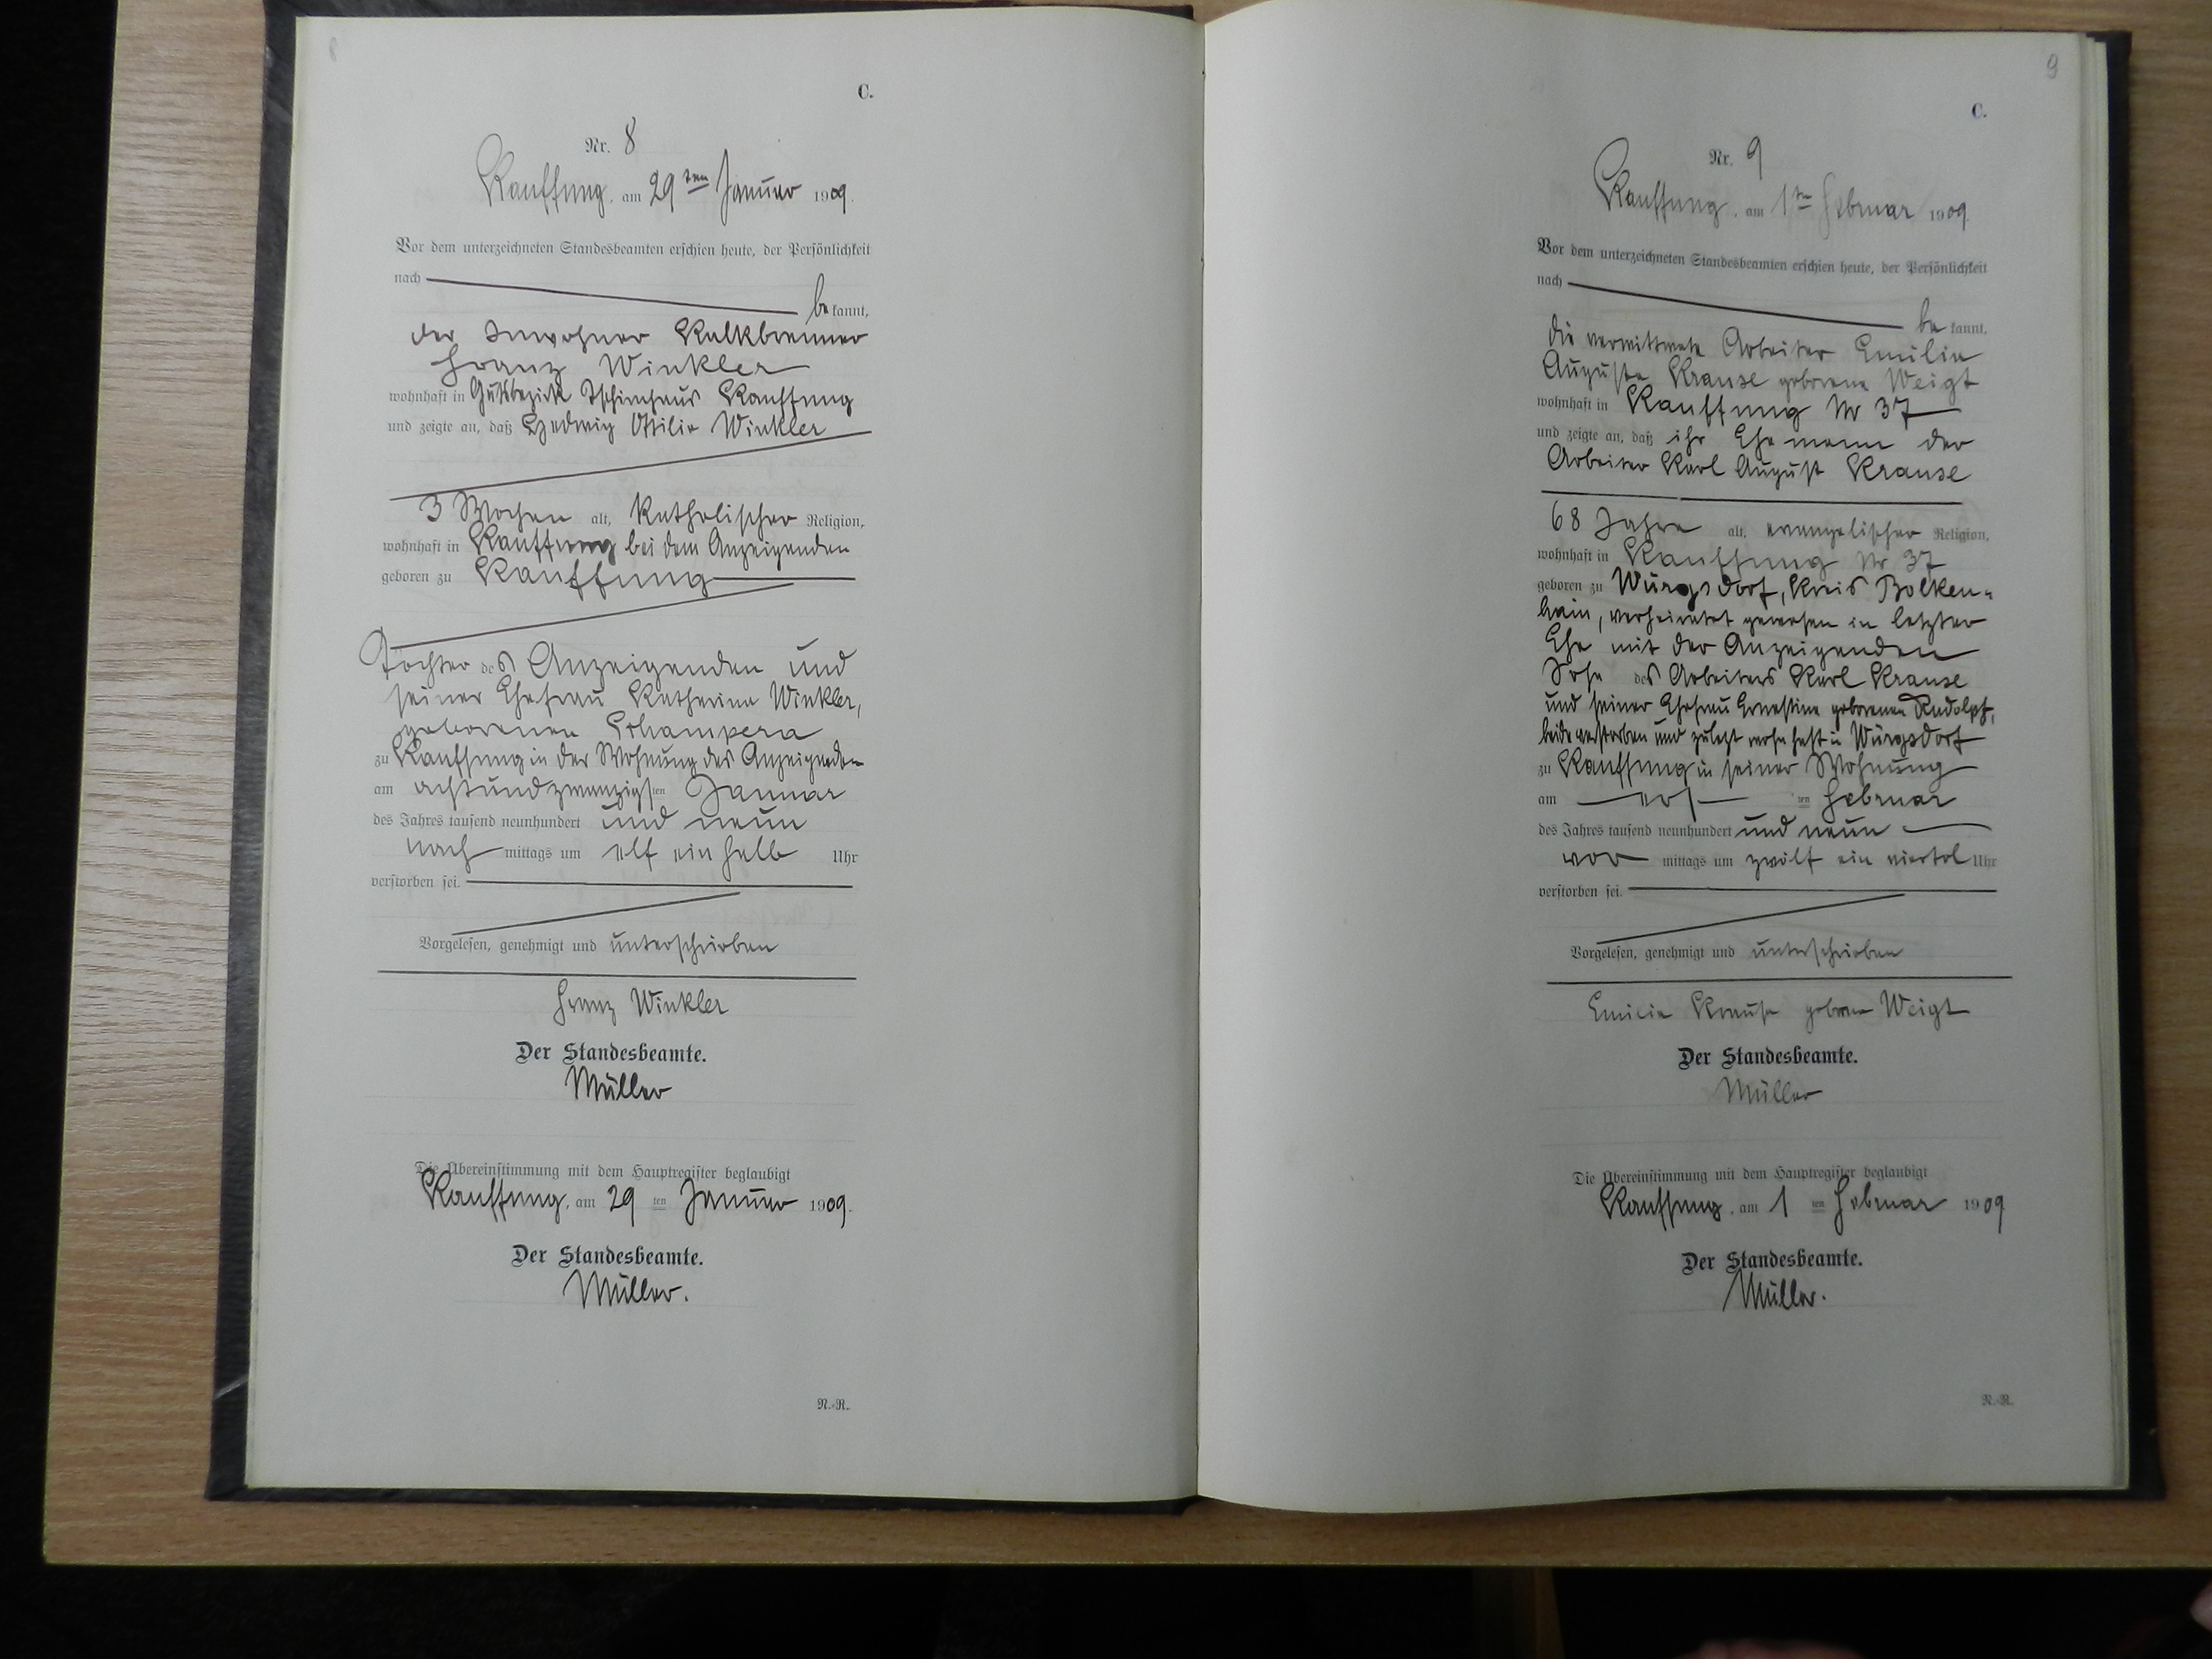 C.
Nr. 8
Kauffung, am 29 ten Januar 1909.
Vor dem unterzeichneten Standesbeamten erschien heute, der Persönlichkeit
nach
be kannt,
der Inwohner Kalkbrenner
Franz Winkler
wohnhaft in Gutsbezirk Tschirnhaus Kauffung
und zeigte an, daß Hedwig Ottilie Winkler
3 Wochen alt, katholischer Religion,
wohnhaft in Kauffung bei dem Anzeigenden
geboren zu Kauffung
Tochter des Anzeigenden und
seiner Ehefrau Katharina Winkler,
geborenen
zu Kauffung in der Wohnung des Anzeigenden
am achtundzwanzigsten Januar
des Jahres tausend neunhundert und neun
nach mittags um elf ein halb Uhr
verstorben sei.
Vorgelesen, genehmigt und unterschrieben
Franz Winkler
Der Standesbeamte.
Müller
Die Übereinstimmung mit dem Hauptregister beglaubigt
Kauffung, am 29 ten Januar 1909.
Der Standesbeamte.
Müller.
N.-R.
9
C.
Nr. 9
Kauffung, am 1 ten Februar 1909.
Vor dem unterzeichneten Standesbeamten erschien heute, der Persönlichkeit
nach
be kannt,
die verwittwete Arbeiter Emilie
Auguste Krause geborene Weigt
wohnhaft in Kauffung Nr 37
und zeigte an, daß ihr Ehemann der
Arbeiter Karl August Krause
68 Jahre alt, evangelischer Religion,
wohnhaft in Kauffung Nr 37
geboren zu Würgsdorf, Kreis Bolken-
hain, verheiratet gewesen in letzter
Ehe mit der Anzeigenden
Sohn des Arbeiters Karl Krause
und seiner Ehefrau Ernestine geborenen Rudolph,
beide verstorben und zuletzt wohnhaft in Würgsdorf
zu Kauffung in seiner Wohnung
am ersten Februar
des Jahres tausend neunhundert und neun
vor mittags um zwölf ein viertel Uhr
verstorben sei.
Vorgelesen, genehmigt und unterschrieben
Emilie Krause geborene Weigt
Der Standesbeamte.
Müller
Die Übereinstimmung mit dem Hauptregister beglaubigt
Kauffung, am 1 ten Februar 1909
Der Standesbeamte.
Müller.
N.-R.